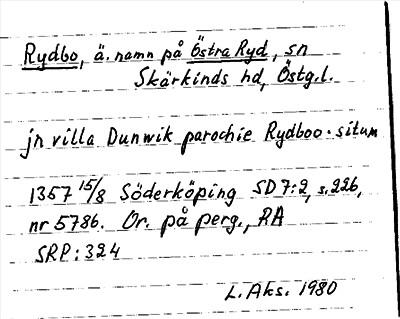 Rydbo, ä. namn på Östra Ryd, sn
Skärkinds hd, Östg.l.
jn villa Dunwik parochie Rydboo. situm
1357 15/8 Söderköping SD 7:2, s. 226,
nr 5786. Or. på perg., RA
SRP: 324
L. Aks. 1980